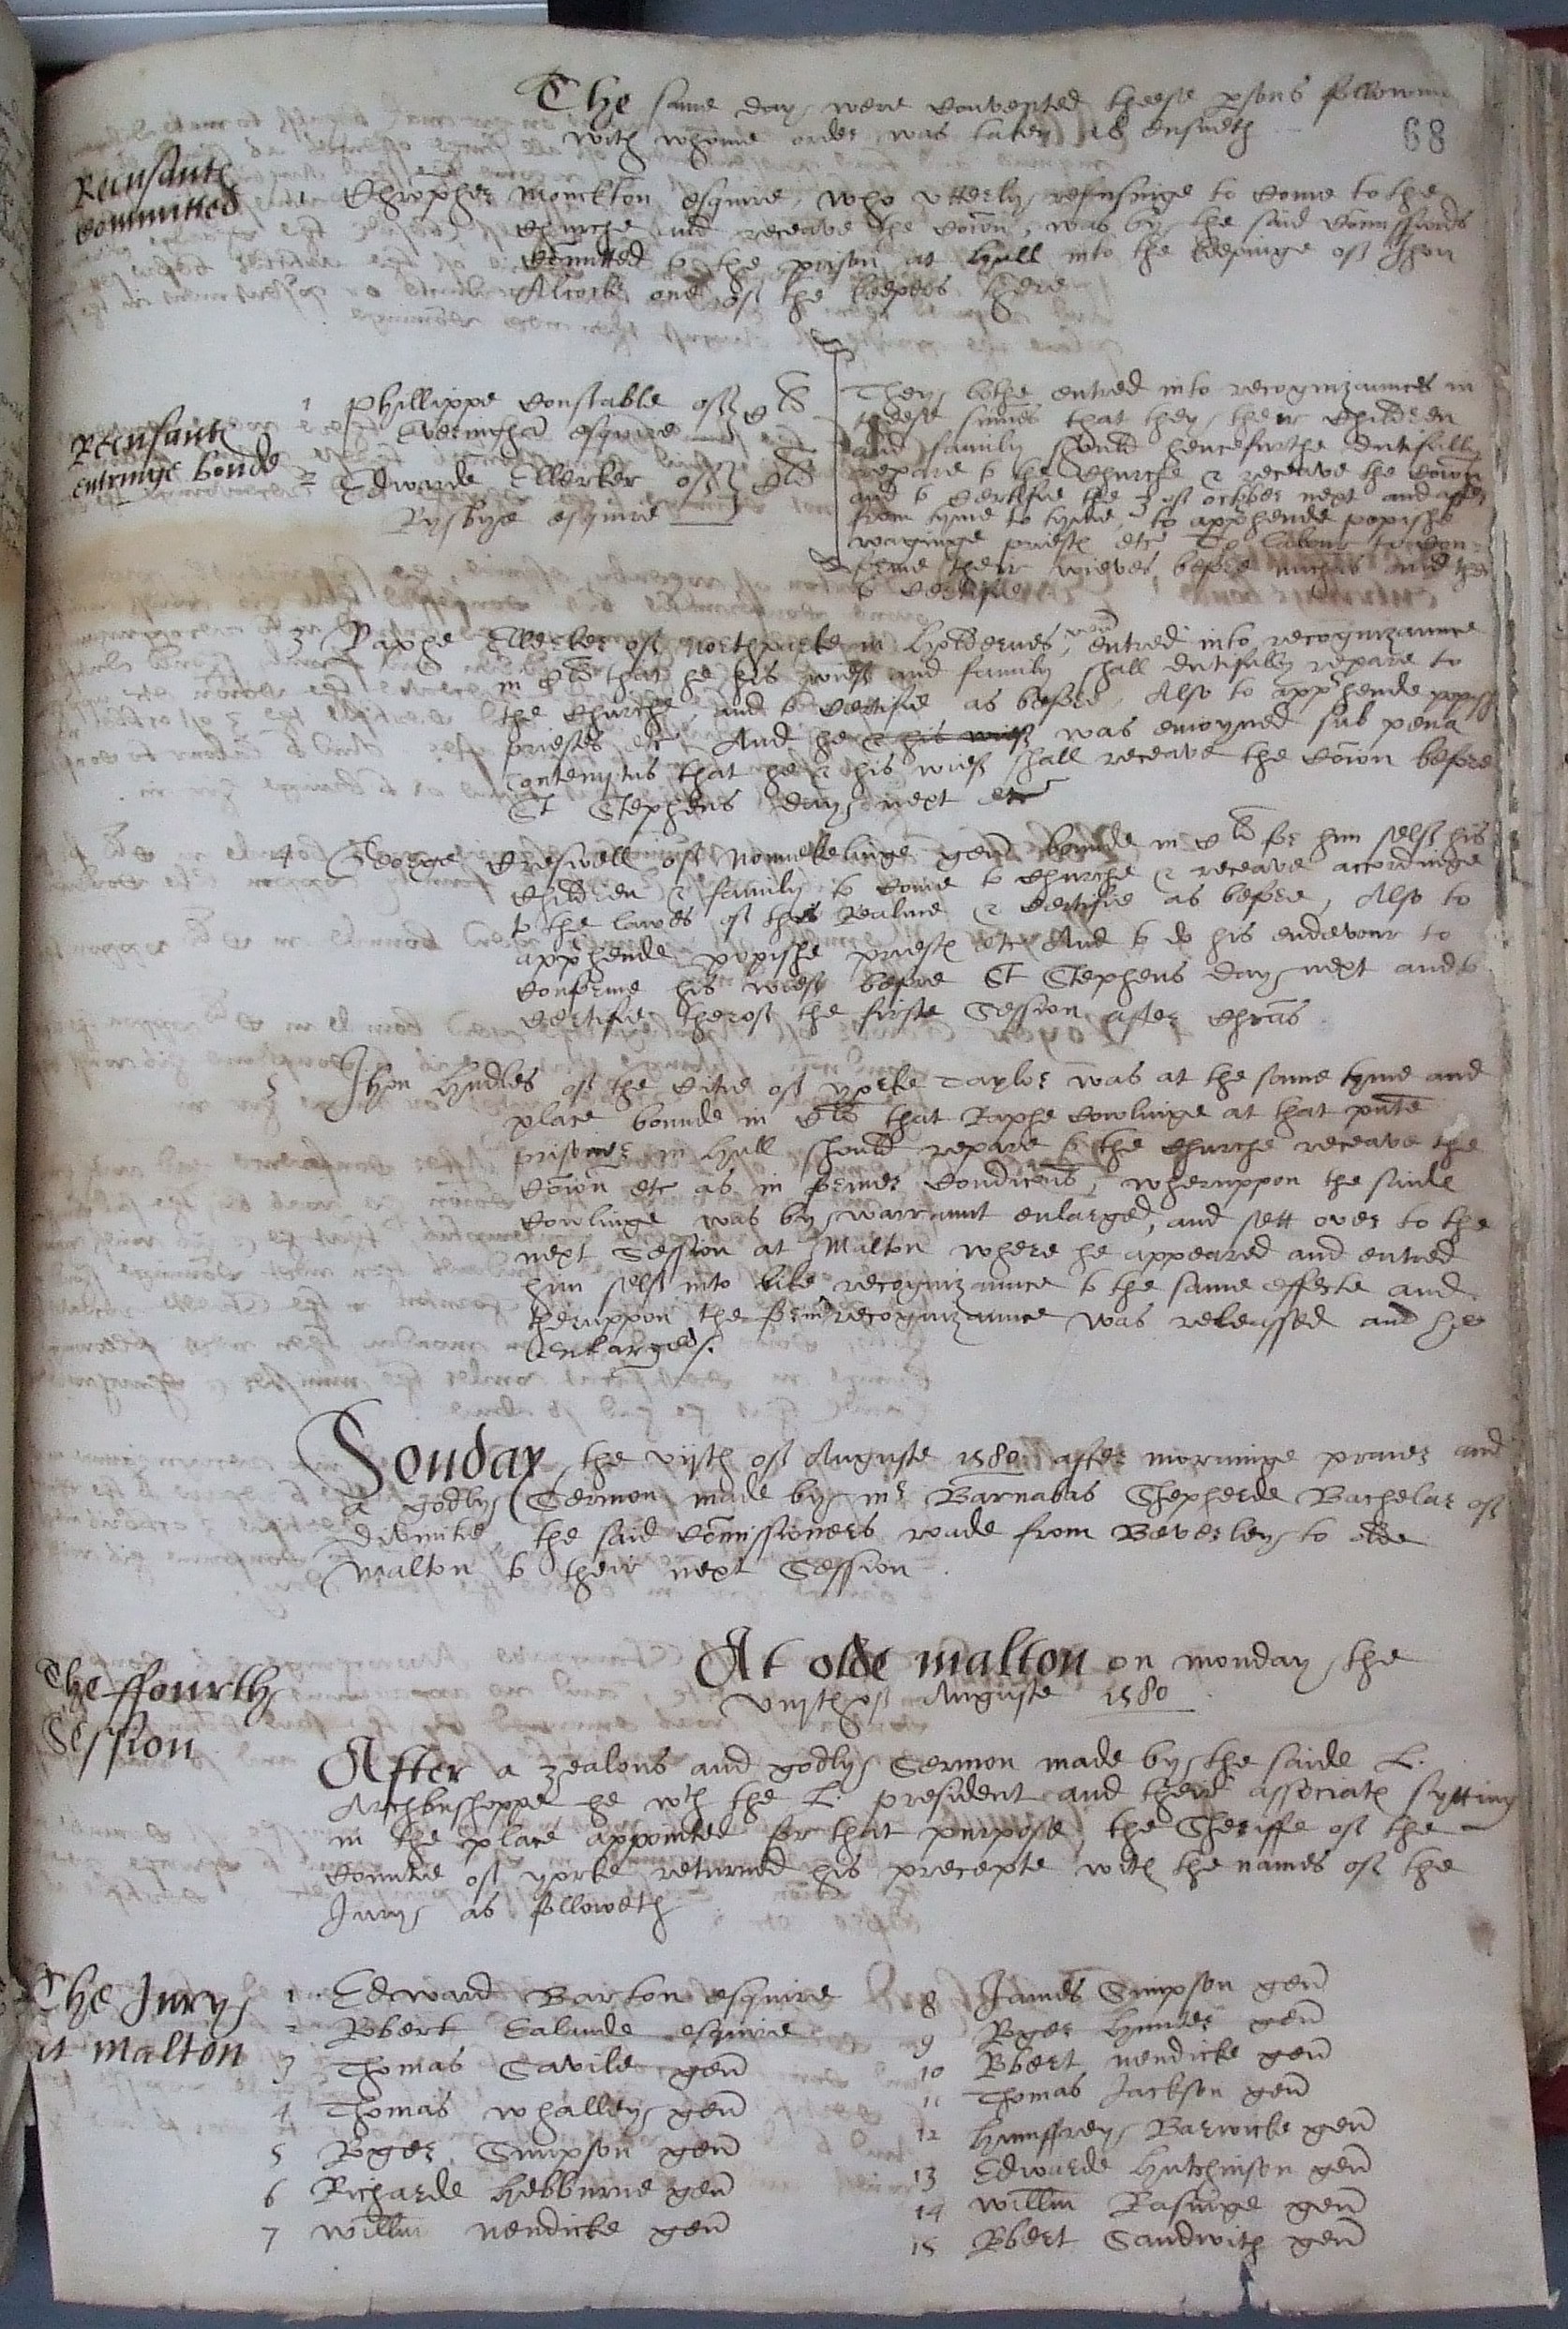 The same day were convented theese psons followin
with whome order was taken as ensueth
68
Recusantes
committed
1 Christopher Monckton esquire, who utterly refusinge to come to the
Churche and receave the Coion, was by the said Comissioners
comitted to the prison at Hull into the kepinge off Jhon
Alcocke one off the kepers there
Recusantes
entringe bonde
1 Phillippe Constable off
Everingham esquire
2 Edwarde Ellerker off
Rysbye esquire
They bothe entred into recognizaunces in
theese sumes that they, their Children
and family should hencefurthe dutifully
repare to the Churche & receave the Coion
and to certifie the 3 off october next and after
from tyme to tyme, to apphende popishe
vagringe priestes etc To labour to con-
forme their wieves before michas and then
to certifie
3 Raphe Ellerker off northparke in Holdernes, entred into recognizaunce
in that he his wieff and family shall dutifully repare to
the Churche, and to certifie as before, Also to apphende popish
priestes etc And he & his wieff was enioyned sub pena
contemptus that he & his wieff shall receave the Coion before
St Stephens day next etc
4 George Creswell off Nonnekelinge gen bounde in for him selff his
Children & family to come to Churche & receave accordinge
to the lawes off this Realme & certifie as before, Also to
apphende popishe priestes etc And to do his endevour to
conforme his wieff before St Stephens day next and to
certifie theroff the firste Session after Chras
5 Jhon Hyndles off the Citie off yorke Taylor was at the same tyme and
place bounde in that Raphe Cowlinge at that pnte
prisoner in Hull should repare to the Churche receave the
Coion etc as in former condicons, wheruppon the saide
Cowlinge was by warraunt enlarged, and sett over to the
next Session at Malton where he appeared and entred
him selff into like recognizaunce to the same effecte and
theruppon the former recognizaunce was relessed and he
enlarged.
Sonday the vijth off Auguste 1580 after morninge praier and
a godly Sermon made by mr Barnabas Shepherde Bachelar off
Divinitie, the said Comissioners roade from Beverley to olde
Malton to their next Session.
The ffourth
Session
At olde malton on monday the
viijth off Auguste 1580
After a zealous and godly Sermon made by the saide L.
Archbushoppe he wth the L. president and their associates sytting
in the place appointed for that purpose, the Sheriffe off the
countie off yorke returned his precepte with the names off the
Jury as followeth
The Jury
at malton
1 Edward Barton esquire
2 Robert Lalande esquire
3 Thomas Savile gen
4 Thomas Whalley gen
5 Roger Simpson gen
6 Richarde Hebburne gen
7 Willm nendicke gen
8 James Simpson gen
9 Roger Hunter gen
10 Robert nendicke gen
11 Thomas Jackson gen
12 Humffrey Barwicke gen
13 Edwarde Hutchinson gen
14 Willm Rasinge gen
15 Robert Sandwith gen